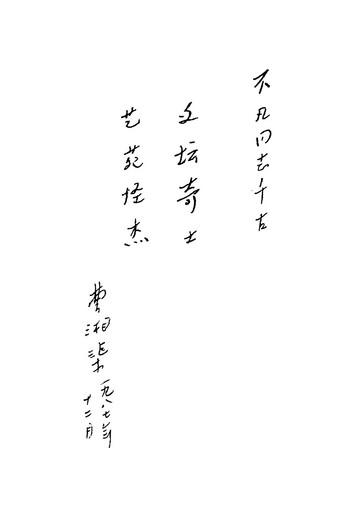 不凡同志千古
文坛奇士
艺苑怪杰
曹湘渠
一九八七年
十二月